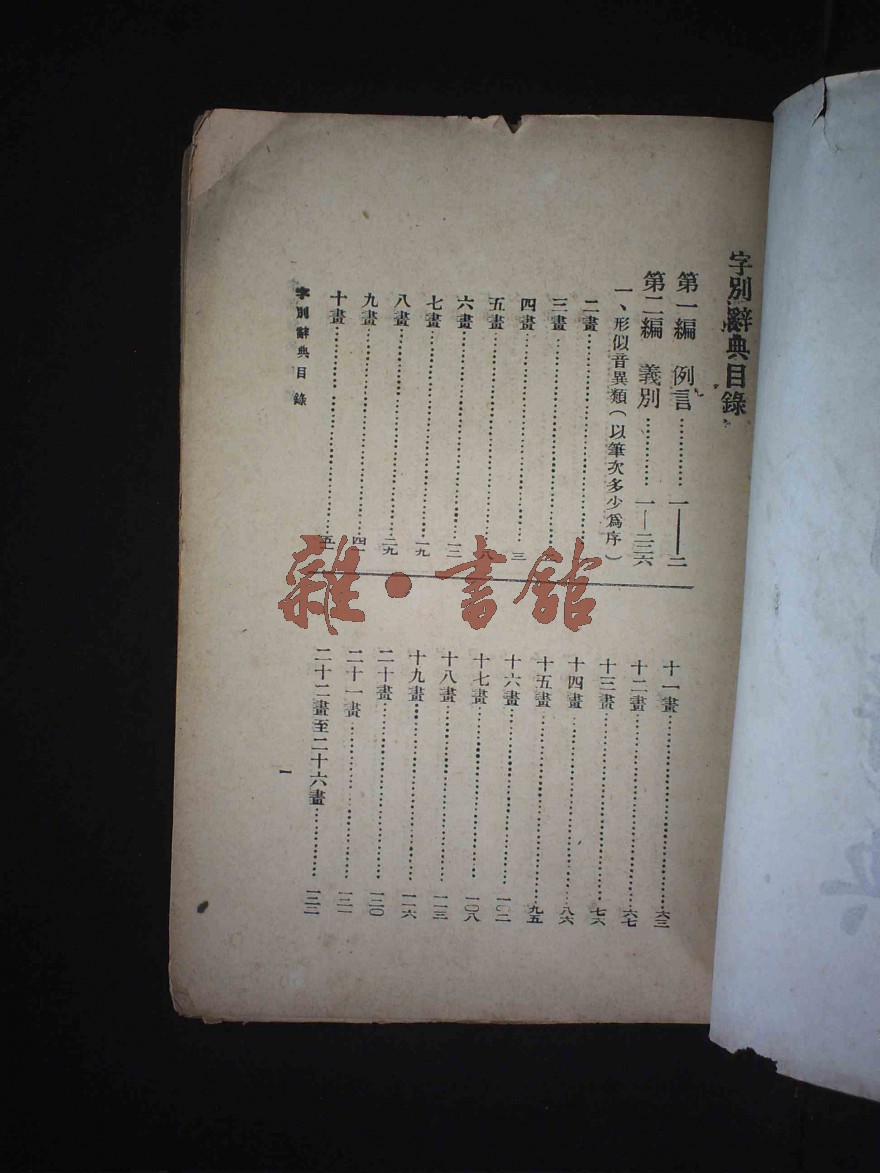 字別辭典目錄
第一編 例言…………一——二
第二編 義別…………一——二三六
一、形似音異類(以筆次多少爲序)
二畫
三畫
四畫……三
五畫……八
六畫……一二
七畫……一九
八畫……二九
九畫……四
十畫……五
十一畫……六三
十二畫……六七
十三畫……七六
十四畫……八六
十五畫……九五
十六畫……一〇二
十七畫……一〇八
十八畫……一一三
十九畫……一一六
二十畫……一二〇
二十一畫……一二一
二十二畫至二十六畫……一二二
字別辭典目錄
一
雜·書館